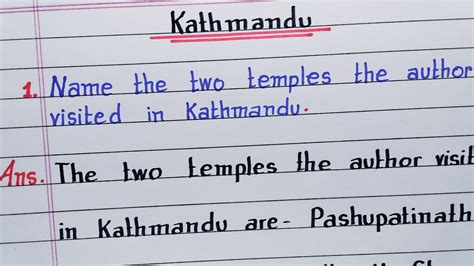 Kathmandu
1. Name the two temples the author
visited in Kathmandu.
Ans. The two temples the author visit
in Kathmandu are - Pashupatinath